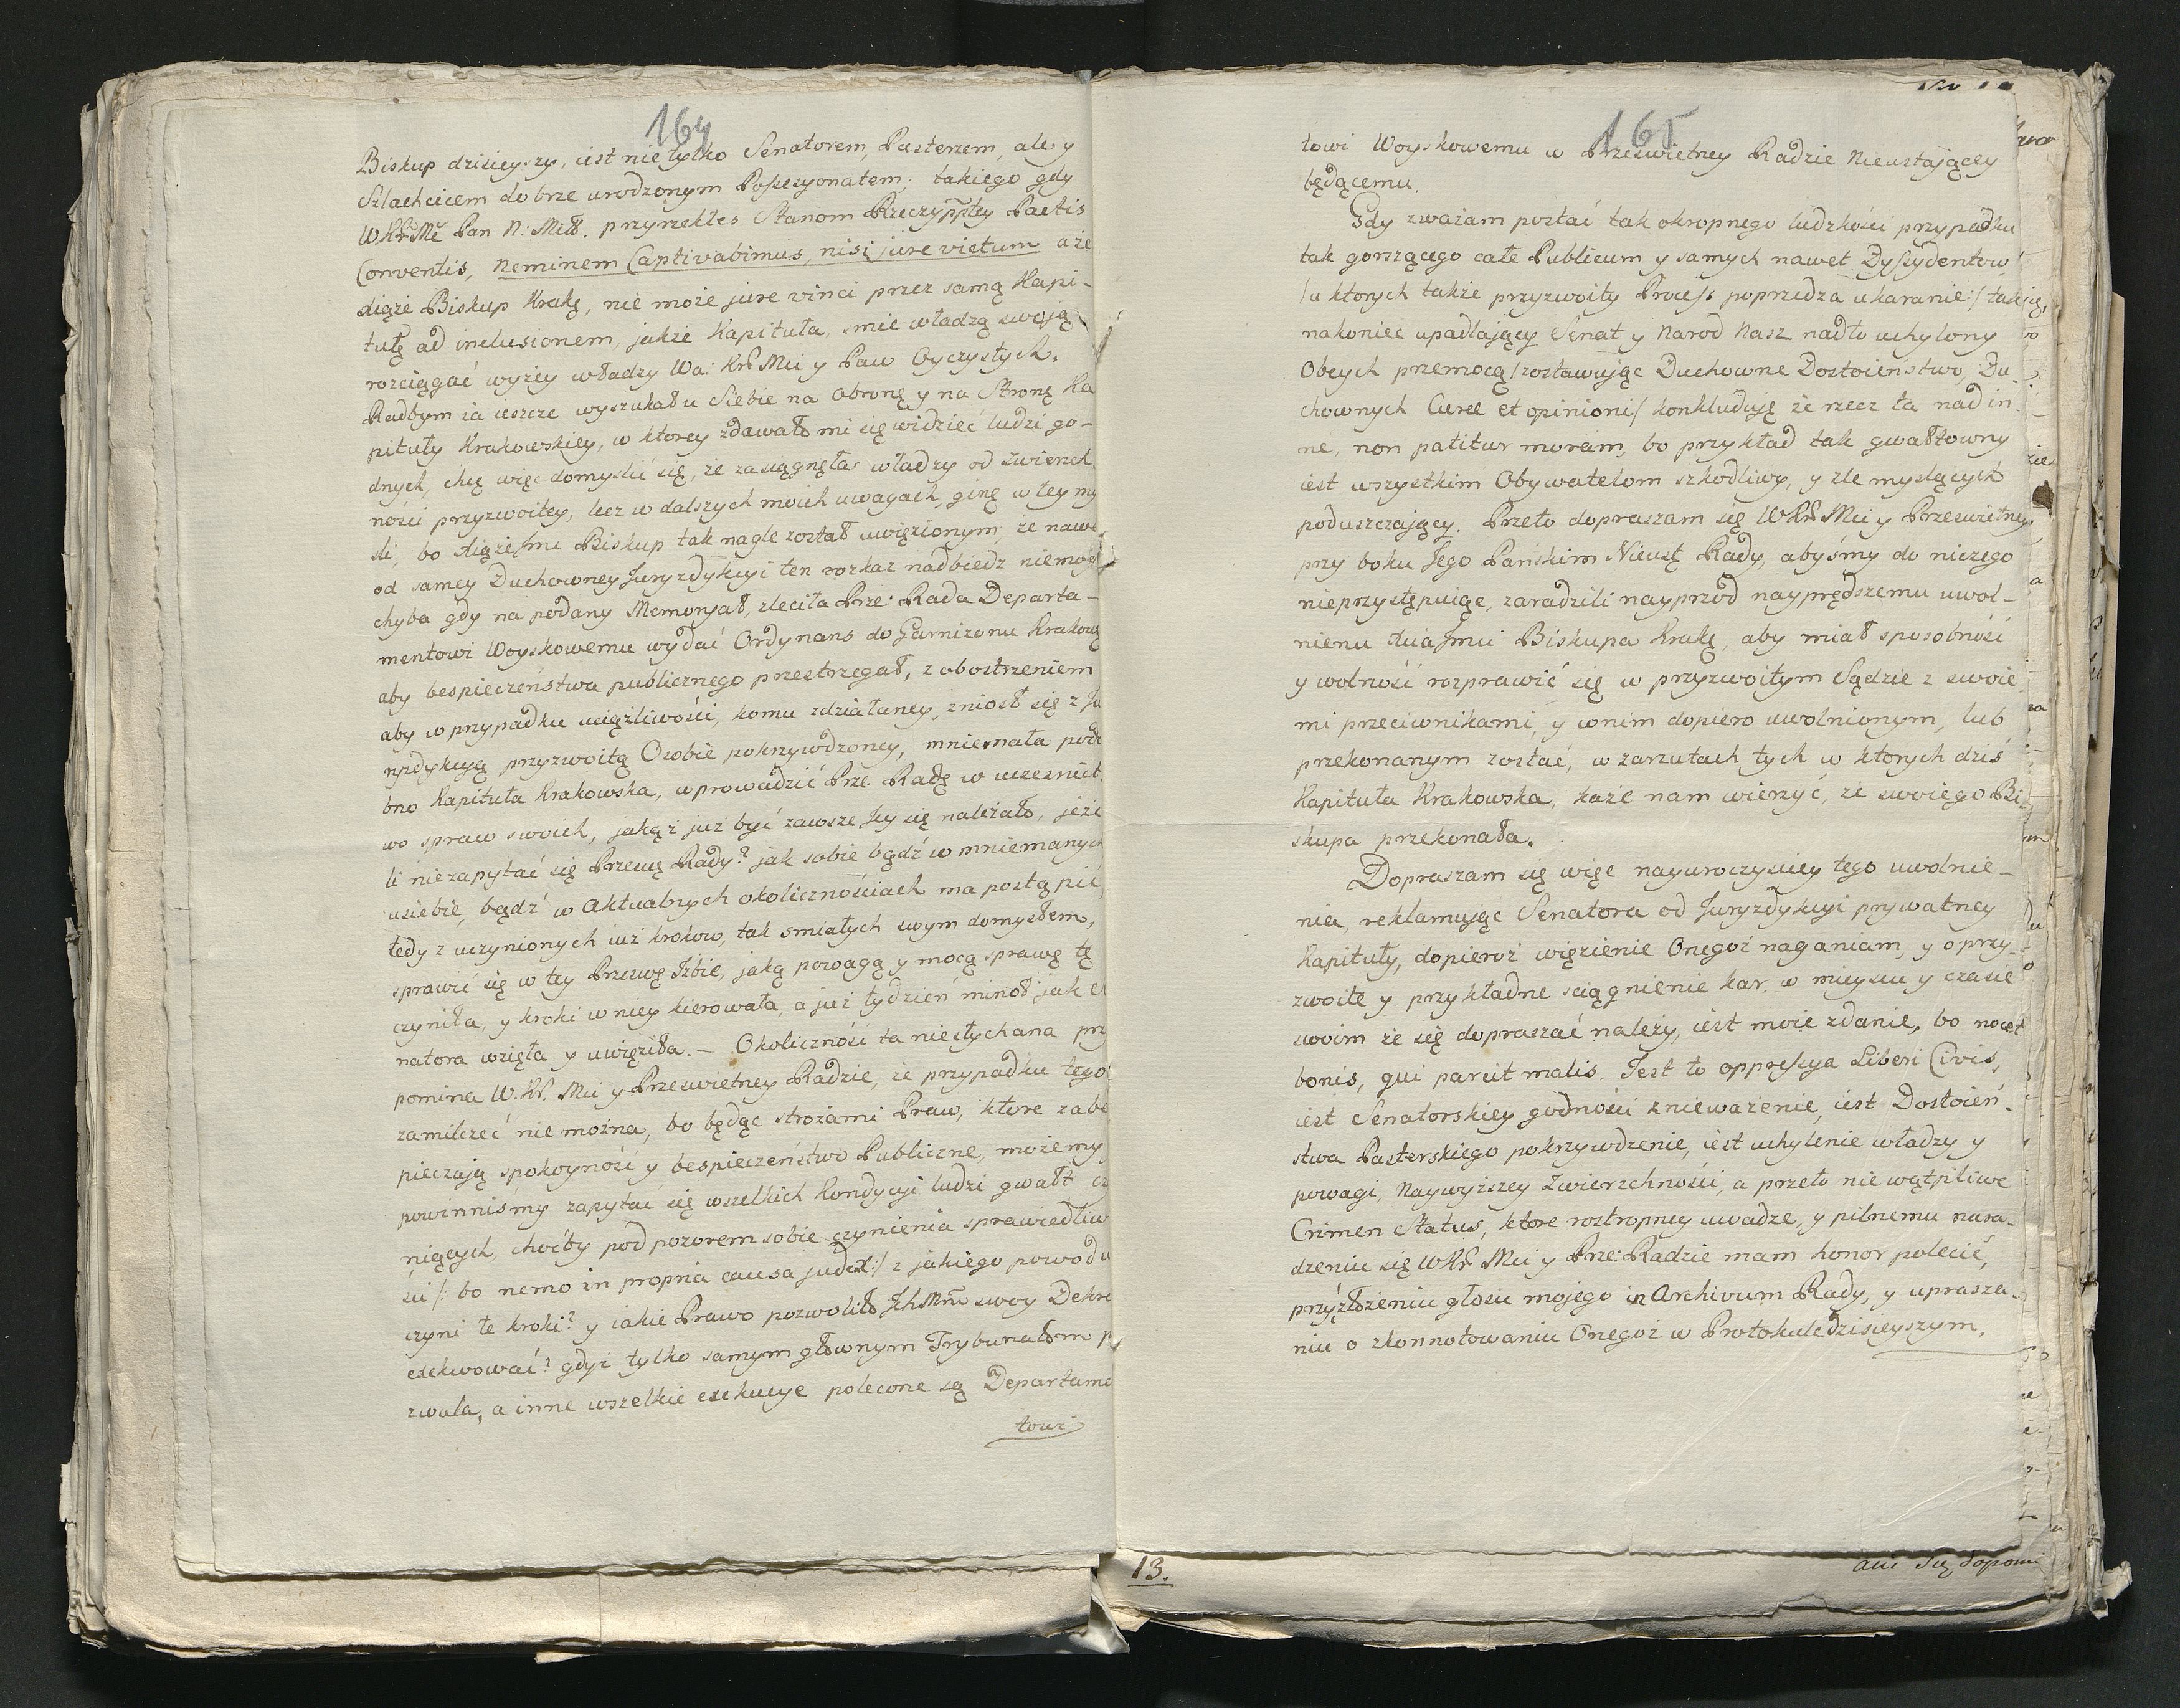 164
Biskup dzisieyszy, iest nie tylko Senatorem, Pasterzem, ale y
Szlachcicem dobrze urodzonym Possesyonatem; takiego gdy
W.KrMć Pan N: Mił. przyrzekłes Stanom Rzeczyppltey Pactis
Conventis, Neminem Captivabimus, nisi jure victum a że
Xiąże Biskup Krakę, nie może jure vinci przez samą Kapi-
tułę ad inclusionem, jakże Kapituła, smie władzą swoją
rozciągać wyżey władzy Wa: Kr Mci y Paw Oyczystych.
Radbym ia ieszcze wyszukał u Siebie na obronę y na Stronę Ka
pituły Krakowskiey, w ktorey zdawało mi się widzieć ludzi go-
dnych, chcę więc domyslić się, że zasiągnęła władzy od zwierzch
ności przyzwoitey, lecz w dalszych moich uwagach, ginę w tey my
sli, bo Xiąże Jmć Biskup tak nagle został uwięzionym, że nawe
od samey Duchowney Juryzdykcyi ten rozkaz nadbiedz niemogł
chyba gdy na podany Memoryał, zleciła Prze: Rada Departa-
mentowi Woyskowemu wydać Ordynans do Garnizonu Krakows
aby bespieczeństwa publicznego przestrzegał, z obostrzeniem
aby w przypadku uciążliwości, komu zdziałaney, zniosł się z Ju
ryzdykcyą przyzwoitą Osobie pokrzywdzoney, mniemała podo
bno Kapituła Krakowska, wprowadzić Prze. Radę w uczesnict
wo spraw swoich, jakąż już być zawsze Jey się należało, jeże
li niezapytać się Przewę Rady? jak sobie bądź w mniemanych
usiebie, bądź w aktualnych okolicznościach ma postąpić,
tedy z uczynionych już krokow, tak smiałych swym domysłem,
sprawić się w tey Przewę Izbie, jaką powagą y mocą sprawę tę
czyniła, y kroki w niey kierowała, a już tydzień minoł jak
natora wzięła y uwięziła. - Okoliczność ta niesłychana
pomina W. Kr. Mci y Przeswietney Radzie, że przypadku tego
zamilczeć nie można, bo będąc strożami Praw, ktore zabe
pieczają spokoyność y bespieczeństwo Publiczne, możemy y
powinnismy zapytać się wszelkich Kondycyi ludzi gwałt
niących, choćby pod pozorem sobie czynienia sprawiedliw
ści /: bo nemo in propria causa judex:/ z jakiego powodu
czyni te kroki? y jakie Prawo pozwoliło Jch Mm swoy Dekre
exekwować? gdyż tylko samym głownym Trybunałom
zwala, a inne wszelkie exekucye polecone są Departame
towi
165
towi Woyskowemu w Przeswietney Radzie Nieustającey
będącemu.
Gdy zważam postać tak okropnego ludzkości przypadku
tak gorszącego całe Publicum y samych nawet Dyssydentow
/u ktorych także przyzwoity Process poprzedza ukaranie:/
nakoniec upadlający Senat y Narod Nasz nadto uchylony
Obcych przemocą /zostawując Duchowne Dostoieństwo, Du
chownych Curæ et opinioni/ konkluduję że rzecz ta nad in-
ne, non patitur moram, bo przykład tak gwałtowny
iest wszystkim Obywatelom szkodliwy, y zle myslących
poduszczający. Przeto dopraszam się WKr Mci y Przeswietney
przy boku Jego Pańskim Nieustę Rady, abyśmy do niczego
nieprzystępuiąc, zaradzili nayprzod nayprędszemu uwol-
nieniu Xcia Jmci Biskupa Krakę, aby miał sposobność
y wolność rozprawić się w przyzwoitym Sądzie z swoie
mi przeciwnikami, y w nim dopiero uwolnionym, lub
przekonanym zostać, w zarzutach tych w ktorych dziś
Kapituła Krakowska, każe nam wierzyć, że swoiego Bi
skupa przekonała.
Dopraszam się więc nayuroczyściey tego uwolnie-
nia, reklamując Senatora od Juryzdykcyi prywatney
Kapituły, dopieroż więzienie Onegoż naganiam, y o przy-
zwoite y przykładne sciągnienie kar, w mieyscu y czasie
swoim że się dopraszać należy, iest moie zdanie, bo nocet
bonis, qui parcit malis. Jest to oppressya Liberi Civis,
iest Senatorskiey godności znieważenie, iest Dostoień-
stwa Pasterskiego pokrzywdzenie, iest uchylenie władzy y
powagi, Naywyższey Zwierzchności, a przeto niewątpliwe
Crimen Status, ktore rostropney uwadze, y pilnemu nara-
dzeniu się WKr Mci y Prze: Radzie mam honor polecić,
przyłożeniu głosu mojego in Archivum Rady, y uprasza-
niu o zkonnotowaniu Onegoż w Protokule dzisieyszym.
13.